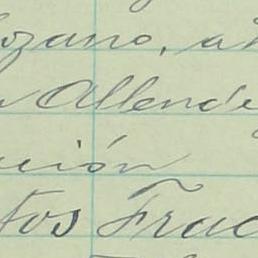 ozano, a
Allende
ción
tos Frac